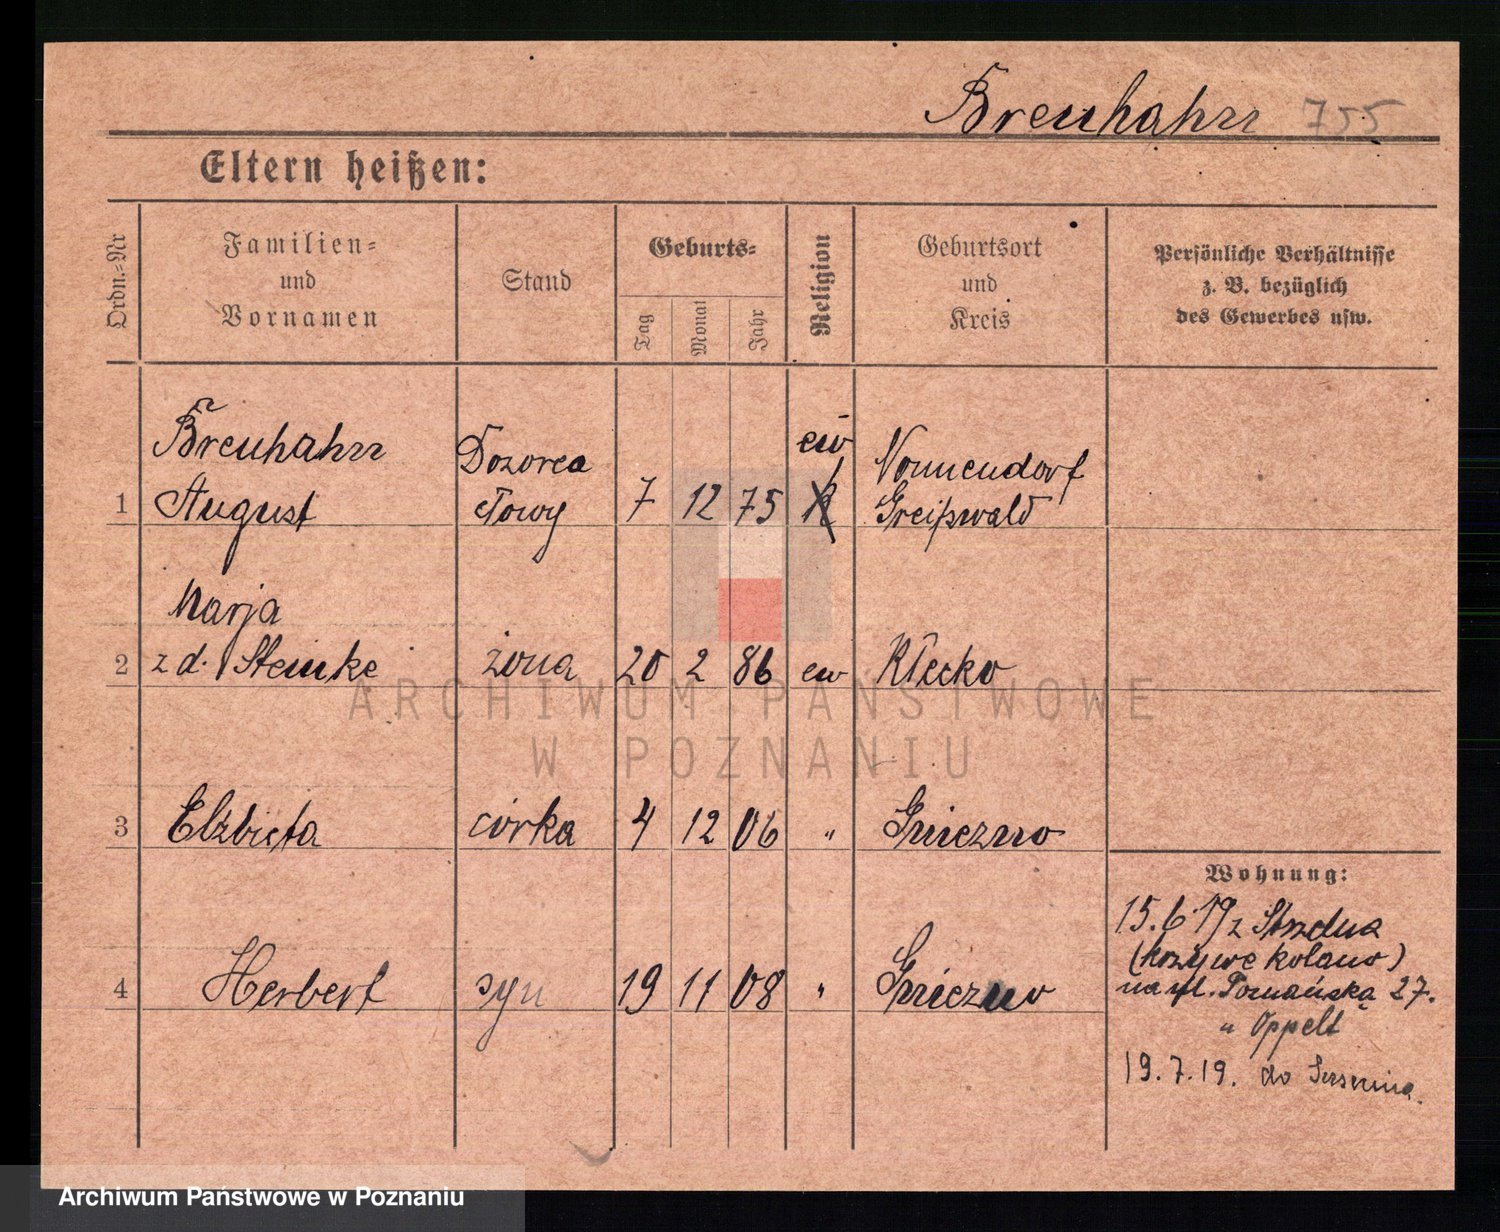 Breuhahn 755
Eltern heißen:
Ordn.=Nr
Familien=
und
Vornamen
Stand
Geburts=
Tag
Monat
Jahr
Religion
Geburtsort
und
Kreis
Persönliche Verhältnisse
z. B. bezüglich
des Gewerbes usw.
1
Breuhahn
August
Dozorca
celowy
7 12 75
ew
k
Nonnendorf
Greißwald
2
Marja
z d. Steinke
żona
20 2 86
ew
Kłecko
3
Elżbieta
córka
4 12 06
"
Gniezno
4
Herbert
syn
19 11 08
"
Gniezno
Wohnung:
15.6 19 z
(krzywe kolano)
na ul. Poznańską 27.
u Oppelt
19.7.19. do
ARCHIWUM PAŃSTWOWE
W POZNANIU
Archiwum Państwowe w Poznaniu